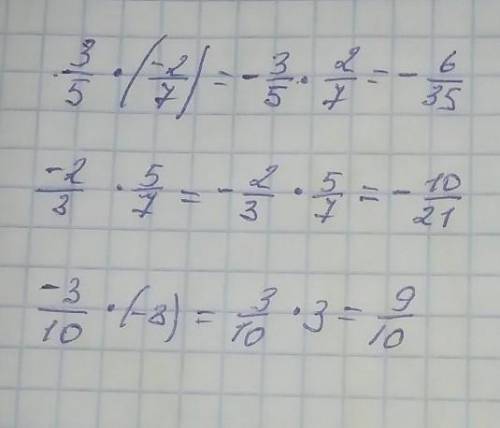 -3/5 · (-2/7) = -3/5 · 2/7 = -6/35
-2/3 · 5/7 = -2/3 · 5/7 = -10/21
-3/10 · (-3) = 3/10 · 3 = 9/10